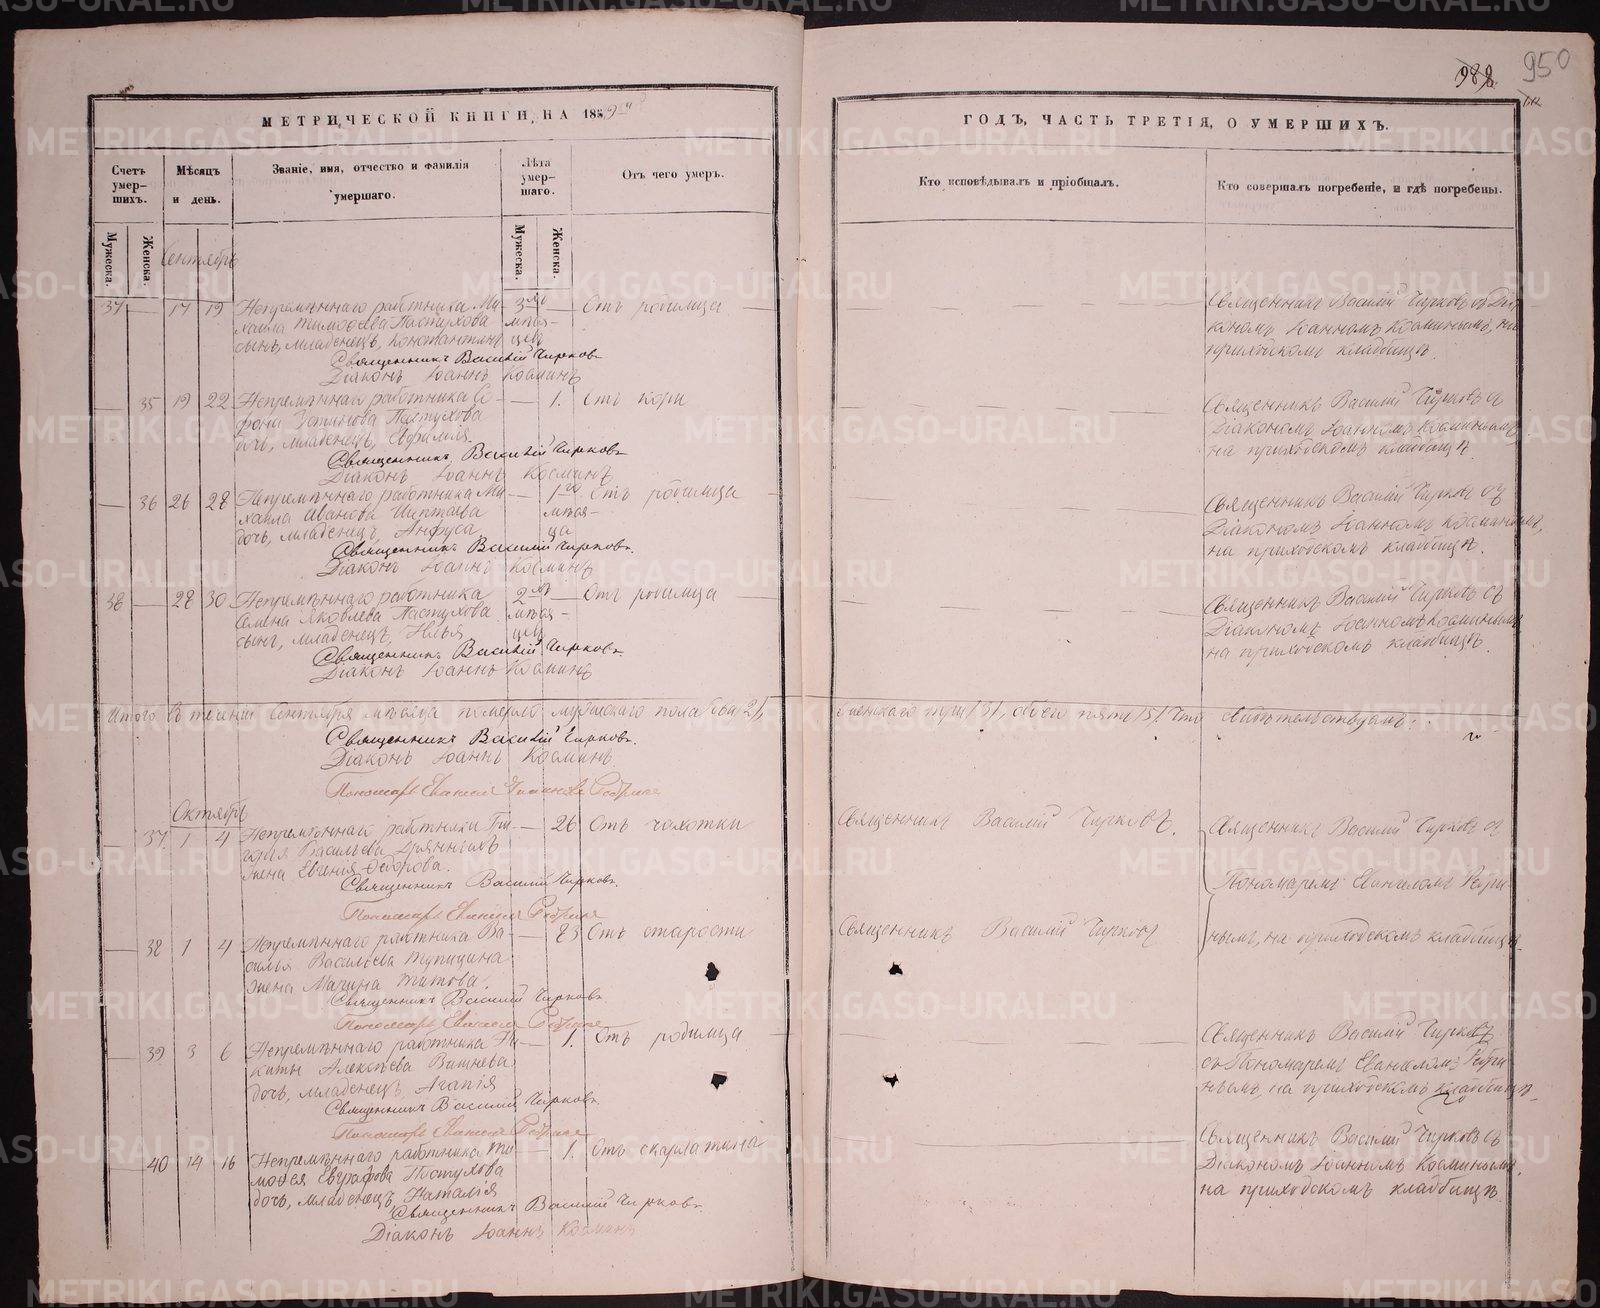 982
950
МЕТРИЧЕСКОЙ КНИГИ, НА 1859
ГОДЪ, ЧАСТЬ ТРЕТІЯ, О УМЕРШИХЪ.
Счетъ умер-шихъ.
Мѣсяцъ и день.
Званіе, имя, отчество и фамилія
умершаго.
Лѣта умер-шаго.
Отъ чего умеръ.
Кто исповѣдывалъ и пріобщалъ.
Кто совершалъ погребеніе, и гдѣ погребены.
Мужеска.
Женска.
Мужеска.
Женска.
Сентябрь
37 — 17 19 Непремѣннаго работника Ми- 3хъ — Отъ родимца
хаила Тимофеева Пастухова мѣся-
сынъ, младенецъ, Константинъ цевъ
Священникъ Василій Чирковъ
Діаконъ Іоаннъ Косминъ
Священникъ Василій Чирковъ съ Діа-
кономъ Іоанномъ Косминымъ, на
приходскомъ кладбищѣ.
— 35 19 22 Непремѣннаго работника — 1. Отъ кори
Устинова Пастухова
дочь, младенецъ,
Священникъ Василій Чирковъ
Діаконъ Іоаннъ Косминъ
Священникъ Василій Чирковъ съ
Діакономъ Іоанномъ Косминымъ
на приходскомъ кладбищѣ.
— 36 26 28 Непремѣннаго работника Ми- — 1го Отъ родимца
хаила Иванова мѣся-
дочь, младенецъ, Анфуса ца
Священникъ Василій Чирковъ
Діаконъ Іоаннъ Косминъ
Священникъ Василій Чирковъ съ
Діакономъ Іоанномъ Косминымъ,
на приходскомъ кладбищѣ.
38 — 28 30 Непремѣннаго работника 2хъ — Отъ родимца
Семена Яковлева Пастухова мѣся-
сынъ, младенецъ, Илья цевъ
Священникъ Василій Чирковъ
Діаконъ Іоаннъ Косминъ
Священникъ Василій Чирковъ съ
Діакономъ Іоанномъ Косминымъ
на приходскомъ кладбищѣ.
Итого въ теченіи Сентября мѣсяца померло мужескаго пола два /2/,
женскаго три /3/, обоего пять /5/. Что свидѣтельствуемъ:
Священникъ Василій Чирковъ
Діаконъ Іоаннъ Косминъ
Пономарь
Октябрь
— 37 1 4 Непремѣннаго работника Гри- — 26 Отъ чахотки
горія Васильева
жена Евгенія Ѳедорова.
Священникъ Василій Чирковъ
Пономарь
Священникъ Василій Чирковъ.
Священникъ Василій Чирковъ съ
Пономаремъ
нымъ, на приходскомъ кладбищѣ
— 38 1 4 Непремѣннаго работника Ва- — 83 Отъ старости
силья Васильева Тупицина
жена Марина Титова.
Священникъ Василій Чирковъ
Пономарь
Священникъ Василій Чирковъ
— 39 3 6 Непремѣннаго работника Ни- — 1. Отъ родимца
киты Алексѣева
дочь, младенецъ Агапія
Священникъ Василій Чирковъ
Пономарь
Священникъ Василій Чирковъ
съ Пономаремъ
нымъ, на приходскомъ кладбищѣ
— 40 14 16 Непремѣннаго работника Ти- — 1. Отъ скарлатины
мофея Евграфова Пастухова
дочь, младенецъ Наталія
Священникъ Василій Чирковъ
Діаконъ Іоаннъ Косминъ
Священникъ Василій Чирковъ съ
Діакономъ Іоанномъ Косминымъ
на приходскомъ кладбищѣ.
METRIKI.GASO-URAL.RU